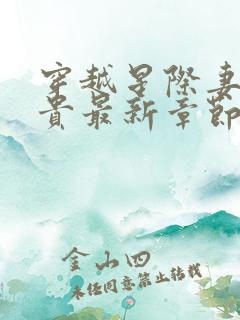 穿越星际妻
贵最新章节
金山四
未经同意禁止转载